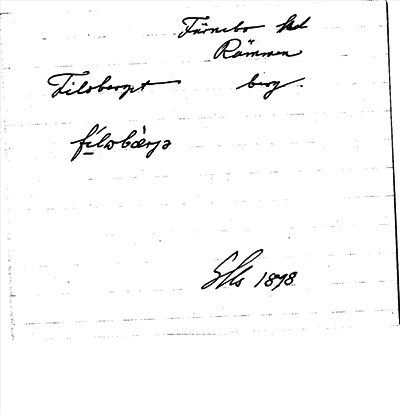 Färnebo hd
Rämmen
Filsberget berg.
fìlsbærjə
1898